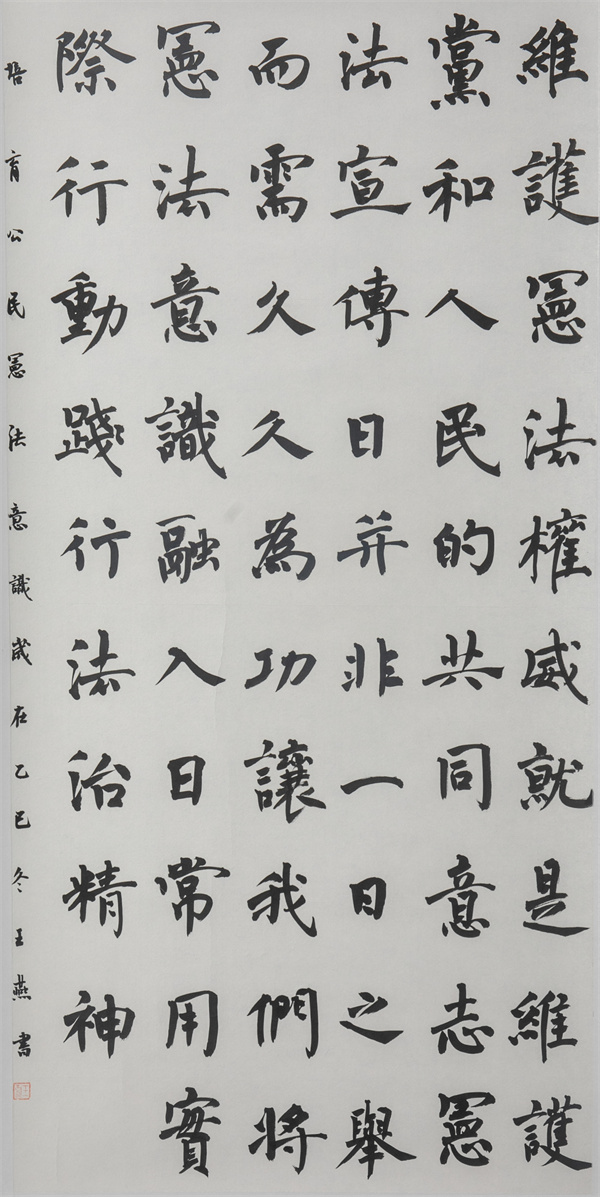 維護憲法權威就是維護
黨和人民的共同意志憲
法宣傳日并非一日之舉
而需久久為功讓我們將
憲法意識融入日常用實
際行動踐行法治精神
培育公民憲法意識歲在乙巳冬王燕書